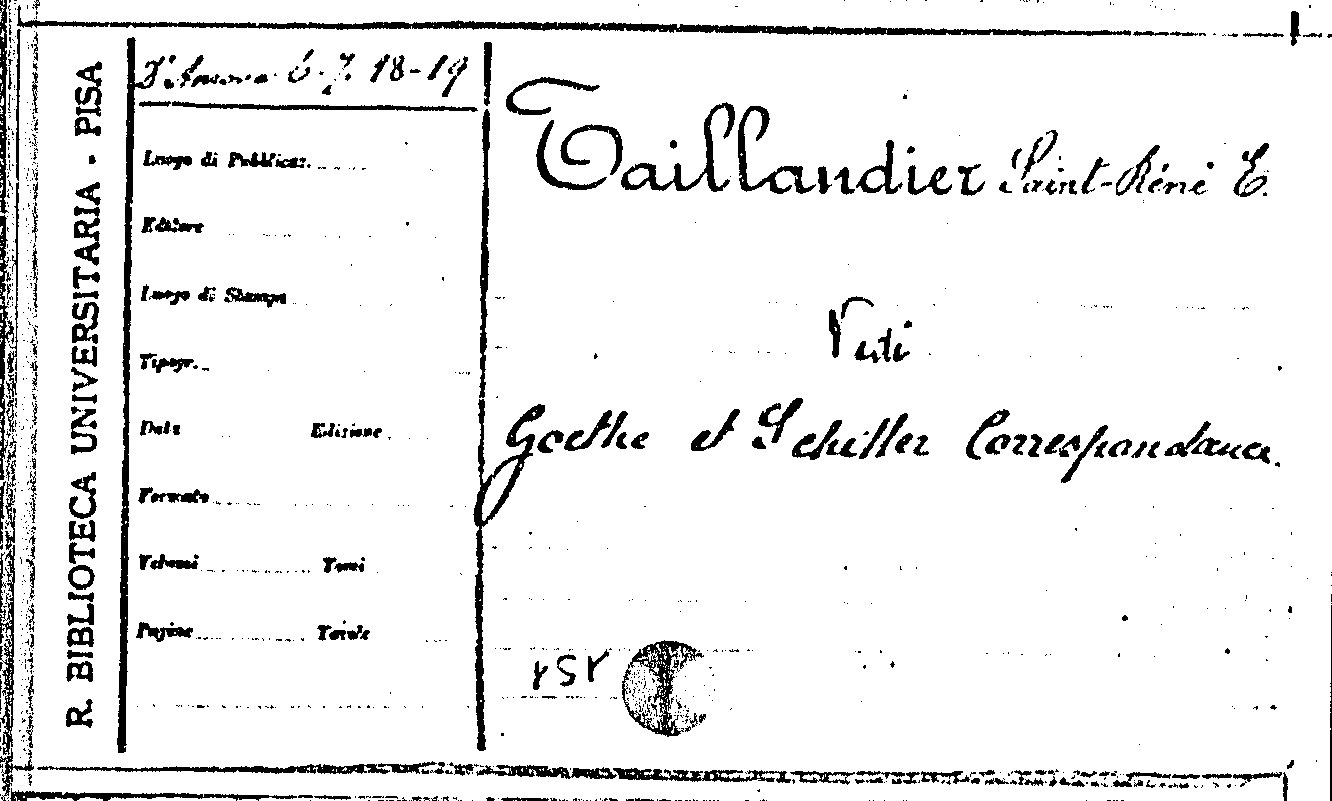 R. BIBLIOTECA UNIVERSITARIA - PISA
D'Ancona 6. 7. 18-19
Luogo di Pubblicaz.
Editore
Luogo di Stampa
Tipogr.
Data Edizione
Formato
Volumi Tomi
Pagine Tavole
Taillandier Saint-Réné E.
Vedi
Goethe et Schiller Correspondance.